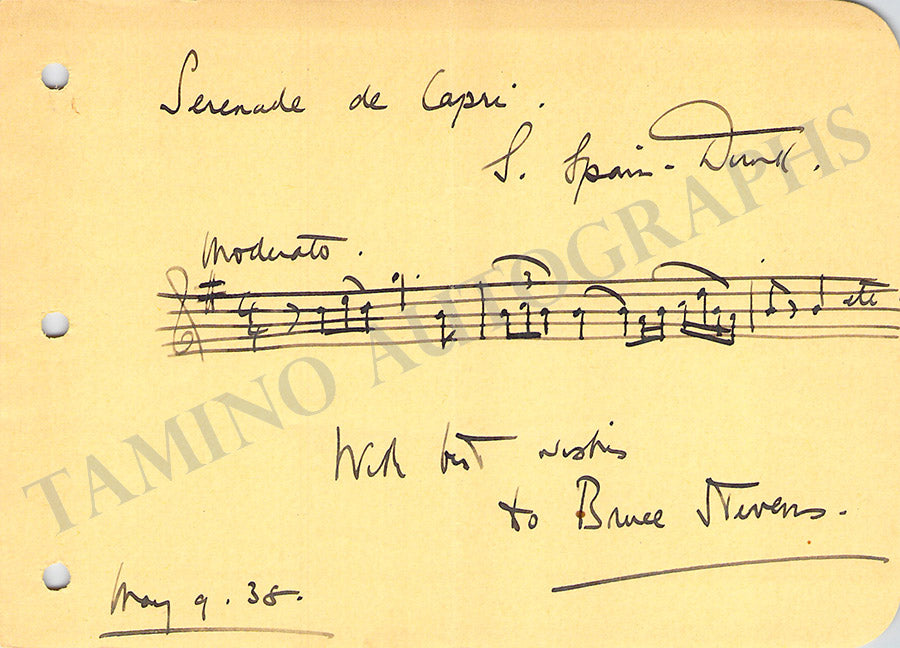 Serenade de Capri.
S. Spain-Dunk.
Moderato.
4
4
3
etc
With best wishes
to Bruce Stevens.
May 9. 38.
TAMINO AUTOGRAPHS